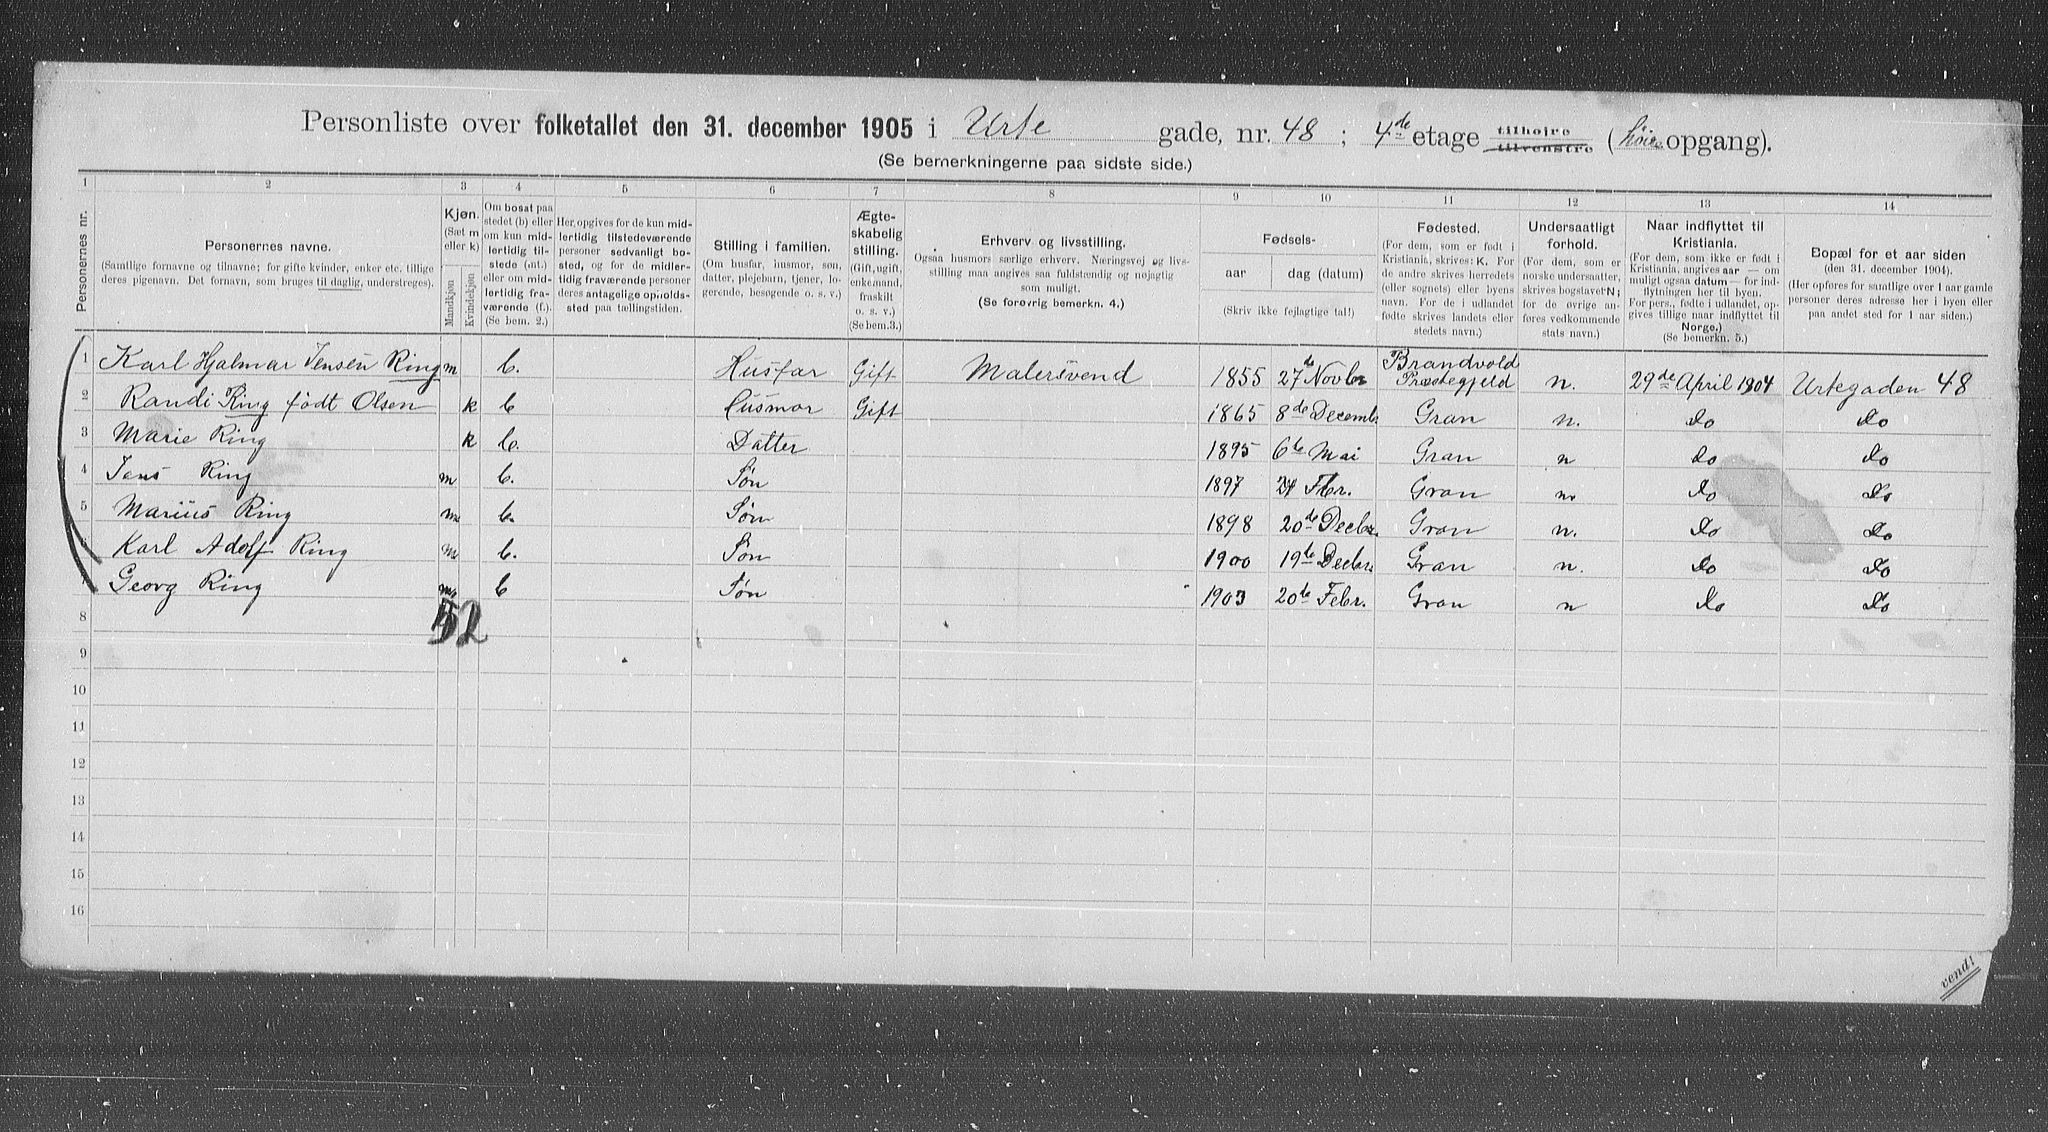 Personliste over folketallet den 31. december 1905 i Urte gade, nr. 48 ; 4de etage tilhøjre tilvenstre (høire opgang).
(Se bemerkningerne paa sidste side.)
1 2 3 4 5 6 7 8 9 10 11 12 13 14
Personernes nr.
Personernes navne.
(Samtlige fornavne og tilnavne; for gifte kvinder, enker etc. tillige
deres pigenavn. Det fornavn, som bruges til daglig, understreges).
Kjøn.
(Sæt m
eller k)
Mandkjøn
Kvindekjøn
Om bosat paa
stedet (b) eller
om kun mid-
lertidig til-
stede (mt.)
eller om mid-
lertidig fra-
værende (f.).
(Se bem. 2.)
Her, opgives for de kun mid-
lertidig tilstedeværende
personer sedvanligt bo-
sted, og for de midler-
tidig fraværende personer
deres antagelige opholds-
sted paa tællingstiden.
Stilling i familien.
(Om husfar, husmor, søn,
datter, plejebarn, tjener, lo-
gerende, besøgende o. s. v.)
Ægte-
skabelig
stilling.
(Gift, ugift,
enkemand,
fraskilt
o. s. v.)
(Se bem. 3.)
Erhverv og livsstilling.
Ogsaa husmors særlige erhverv. Næringsvej og livs-
stilling maa angives saa fuldstændig og nøjagtig
som muligt.
(Se forøvrig bemerkn. 4.)
Fødsels-
aar dag (datum)
(Skriv ikke fejlagtige tal!)
Fødested.
(For dem, som er født i
Kristiania, skrives: K. For
de andre skrives herredets
(eller sognets) eller byens
navn. For de i udlandet
fødte skrives landets eller
stedets navn.)
Undersaatligt
forhold.
(For dem, som er
norske undersaatter,
skrives bogstavet N;
for de øvrige an-
føres vedkommende
stats navn.)
Naar indflyttet til
Kristiania.
(For dem, som ikke er født i
Kristiania, angives aar — om
muligt ogsaa datum — for ind-
flytningen her til byen.
For pers., fødte i udlandet, op-
gives tillige naar indflyttet til
Norge.)
(Se bemerkn. 5.)
Bopæl for et aar siden
(den 31. december 1904).
(Her opføres for samtlige over 1 aar gamle
personer deres adresse her i byen eller
paa andet sted for 1 aar siden.)
1 Karl Hjalmar Jensen Ring m b. Husfar Gift Malersvend 1855 27de Novbr Brandvold Præstegjeld n. 29de April 1904 Urtegaden 48
2 Randi Ring født Olsen k b Husmor Gift 1865 8de Decemb. Gran n. do do
3 Marie Ring k b. Datter 1895 6te Mai Gran n do do
4 Jens Ring m b. Søn 1897 24 Fbr. Gran n. do do
5 Marius Ring m b. Søn 1898 20de Decbr. Gran n. do do
6 Karl Adolf Ring m b. Søn 1900 19te Decbr. Gran n. do do
7 Georg Ring m b Søn 1903 20de Febr. Gran n do do
52
8
9
10
11
12
13
14
15
16
vend!